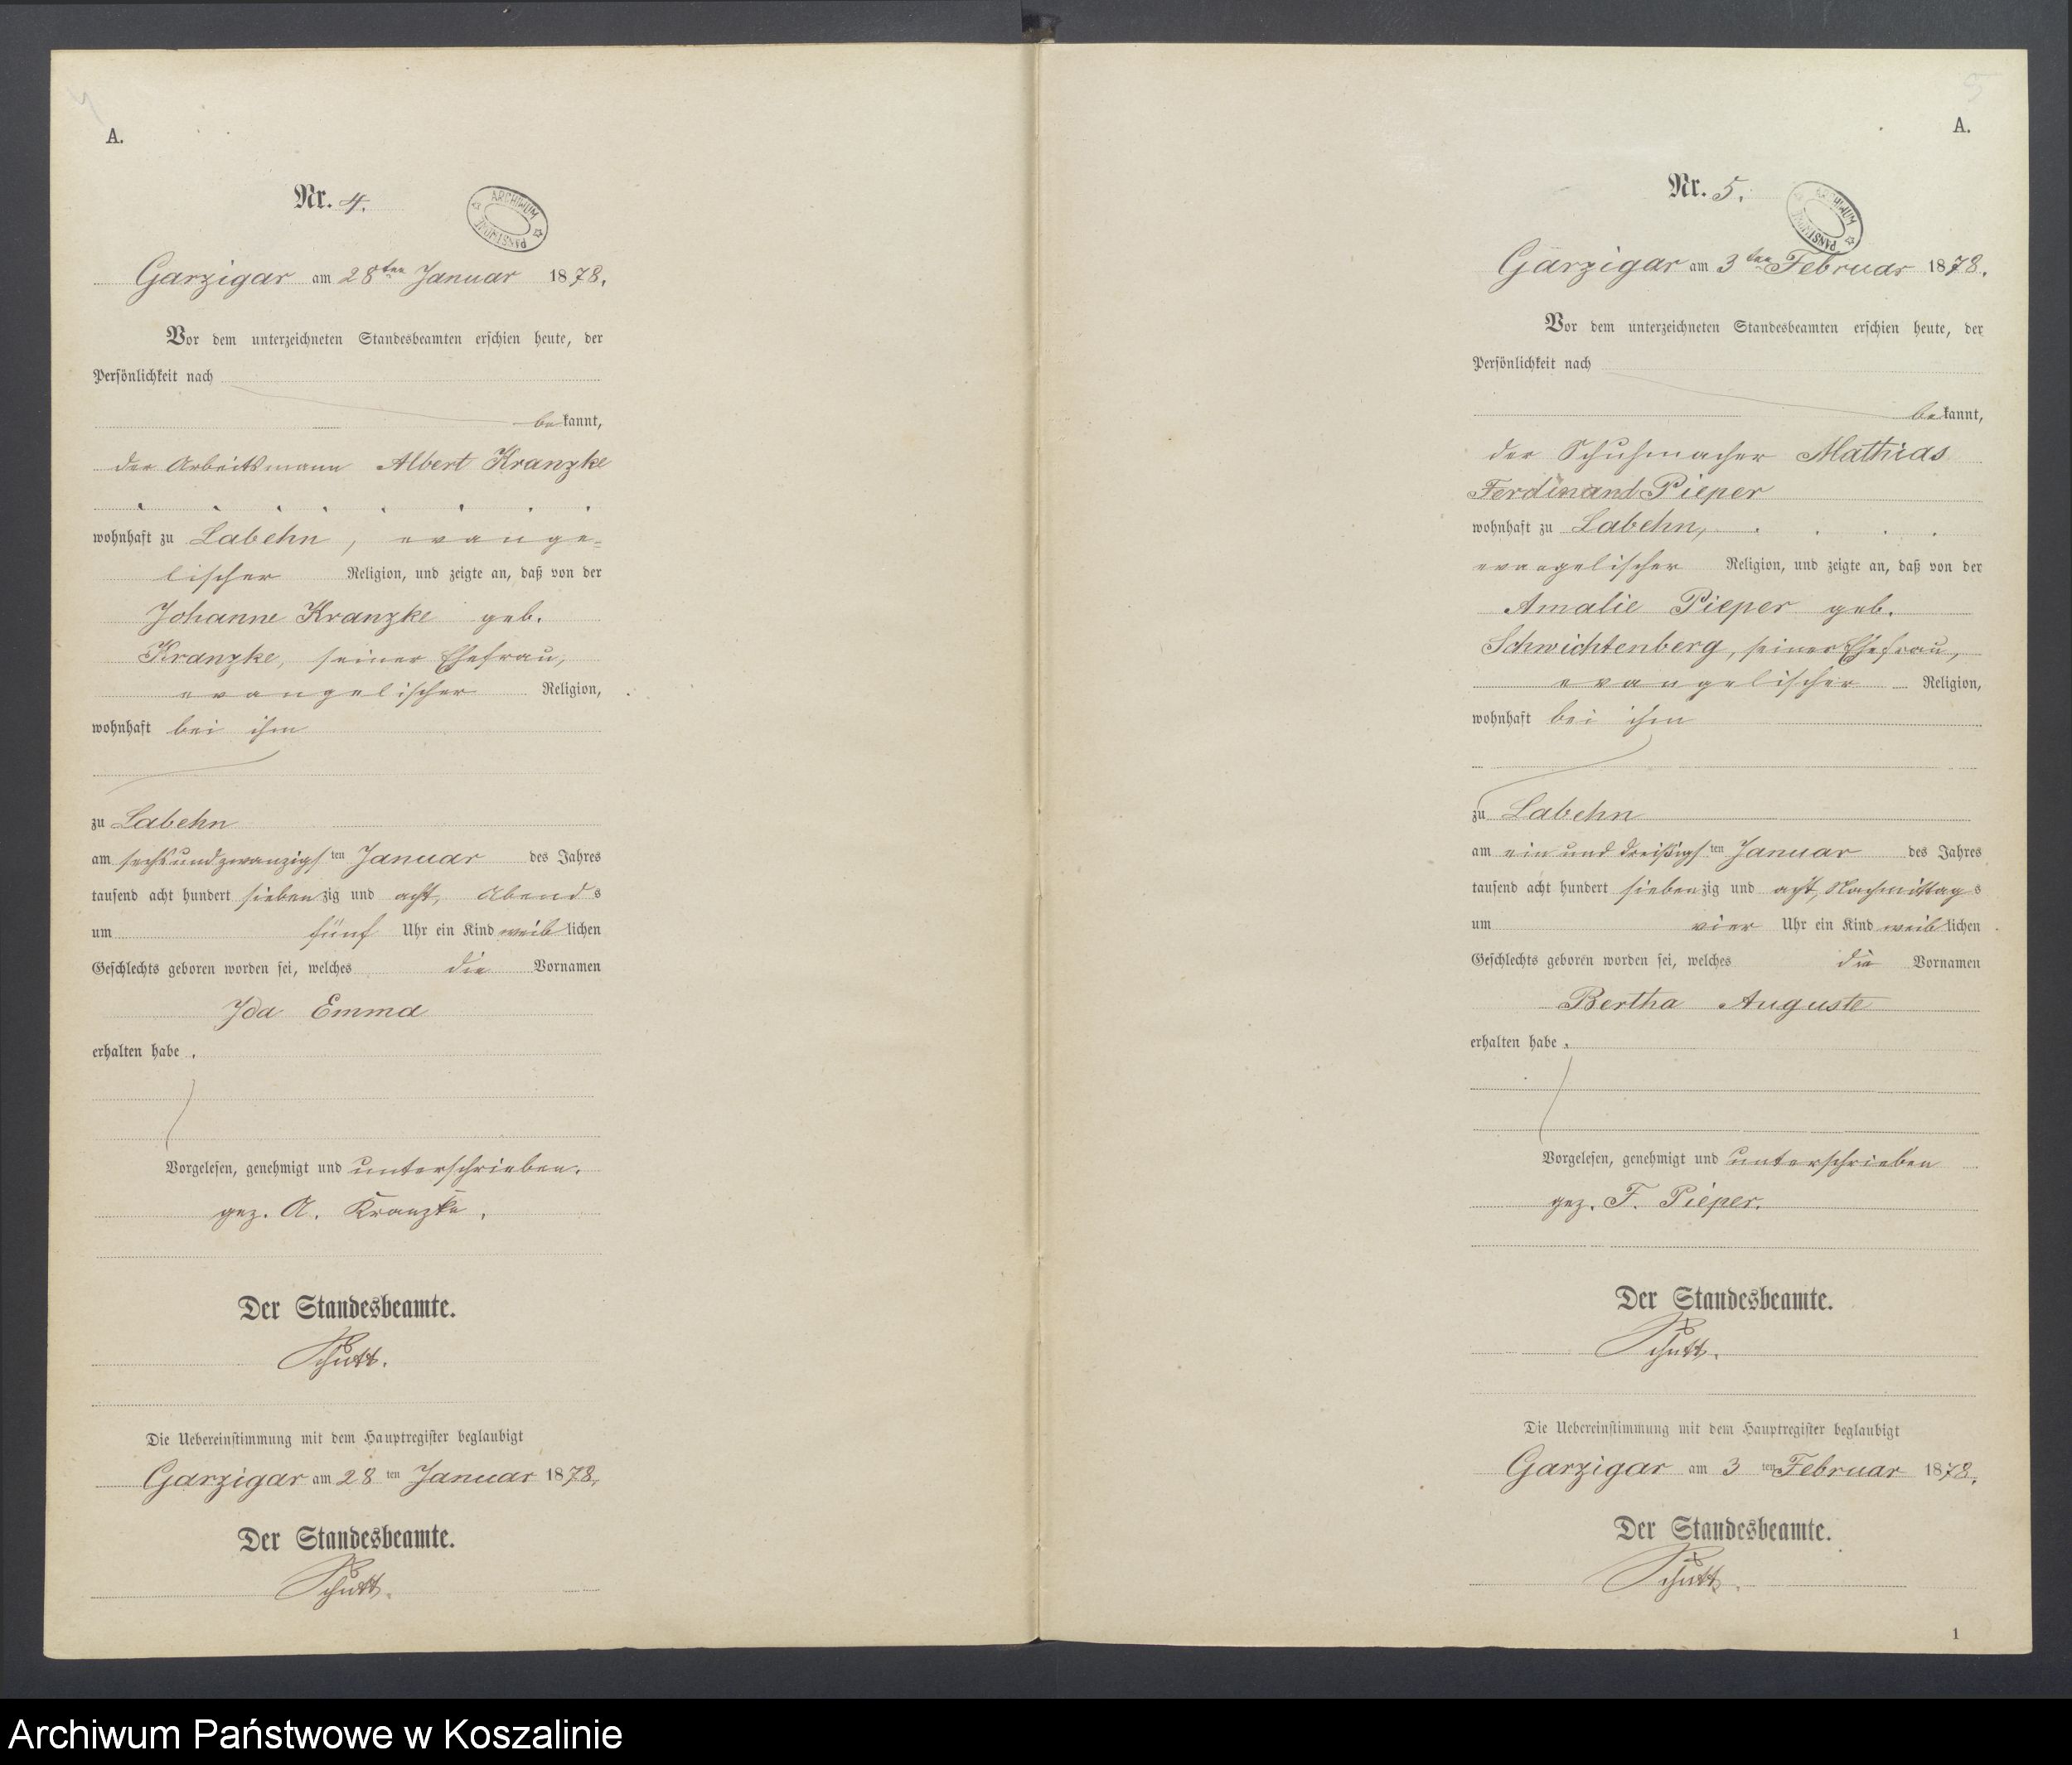 A.
Nr. 4.
ARCHIWUM PAŃSTWOWE
Garzigar am 28ten Januar 1878.
Vor dem unterzeichneten Standesbeamten erschien heute, der
Persönlichkeit nach
bekannt,
der Arbeitsmann Albert Kranzke
wohnhaft zu Labehn, evange=
lischer Religion, und zeigte an, daß von der
Johanne Kranzke geb.
Kranzke, seiner Ehefrau,
evangelischer Religion,
wohnhaft bei ihm
zu Labehn
am sechsundzwanzigsten Januar des Jahres
tausend acht hundert siebenzig und acht, Abends
um fünf Uhr ein Kind weiblichen
Geschlechts geboren worden sei, welches die Vornamen
Ida Emma
erhalten habe.
Vorgelesen, genehmigt und unterschrieben.
gez. A. Kranzke.
Der Standesbeamte.
Schutt.
Die Uebereinstimmung mit dem Hauptregister beglaubigt
Garzigar am 28 ten Januar 1878.
Der Standesbeamte.
Schutt.
5
A.
Nr. 5.
ARCHIWUM PAŃSTWOWE
Garzigar am 3ten Februar 1878.
Vor dem unterzeichneten Standesbeamten erschien heute, der
Persönlichkeit nach
bekannt,
der Schuhmacher Mathias
Ferdinand Pieper
wohnhaft zu Labehn,
evangelischer Religion, und zeigte an, daß von der
Amalie Pieper geb.
Schwichtenberg, seiner Ehefrau,
evangelischer Religion,
wohnhaft bei ihm
zu Labehn
am ein und dreißigsten Januar des Jahres
tausend acht hundert siebenzig und acht, Nachmittags
um vier Uhr ein Kind weiblichen
Geschlechts geboren worden sei, welches die Vornamen
Bertha Auguste
erhalten habe.
Vorgelesen, genehmigt und unterschrieben
gez. F. Pieper.
Der Standesbeamte.
Schutt.
Die Uebereinstimmung mit dem Hauptregister beglaubigt
Garzigar am 3 ten Februar 1878.
Der Standesbeamte.
Schutt.
1
Archiwum Państwowe w Koszalinie